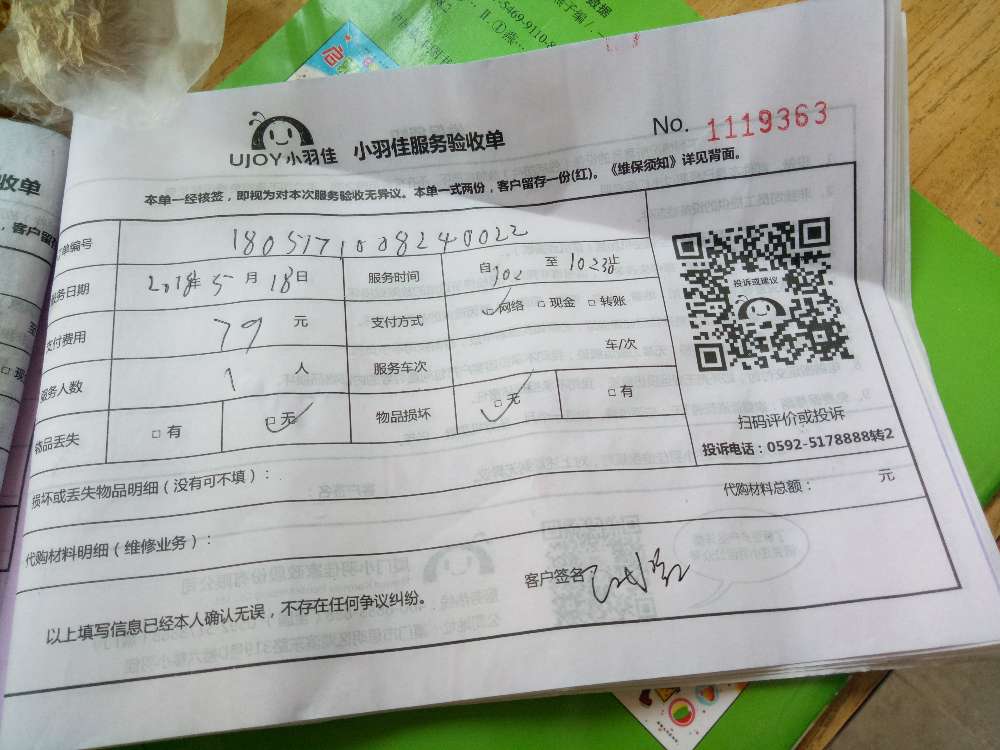 UJOY小羽佳 小羽佳服务验收单 No. 1119363
本单一经核签，即视为对本次服务验收无异议。本单一式两份，客户留存一份(红)。《维保须知》详见背面。
单编号 1805171008240022
服务日期 2018年5月18日 服务时间 自 至 1023止
支付费用 79 元 支付方式 □网络 □现金 □转账
服务人数 1 人 服务车次 车/次
物品丢失 □有 □无 物品损坏 □无 □有
投诉或建议
扫码评价或投诉
投诉电话：0592-5178888转2
损坏或丢失物品明细（没有可不填）：
代购材料总额： 元
代购材料明细（维修业务）：
客户签名：
以上填写信息已经本人确认无误，不存在任何争议纠纷。
收单
客户留